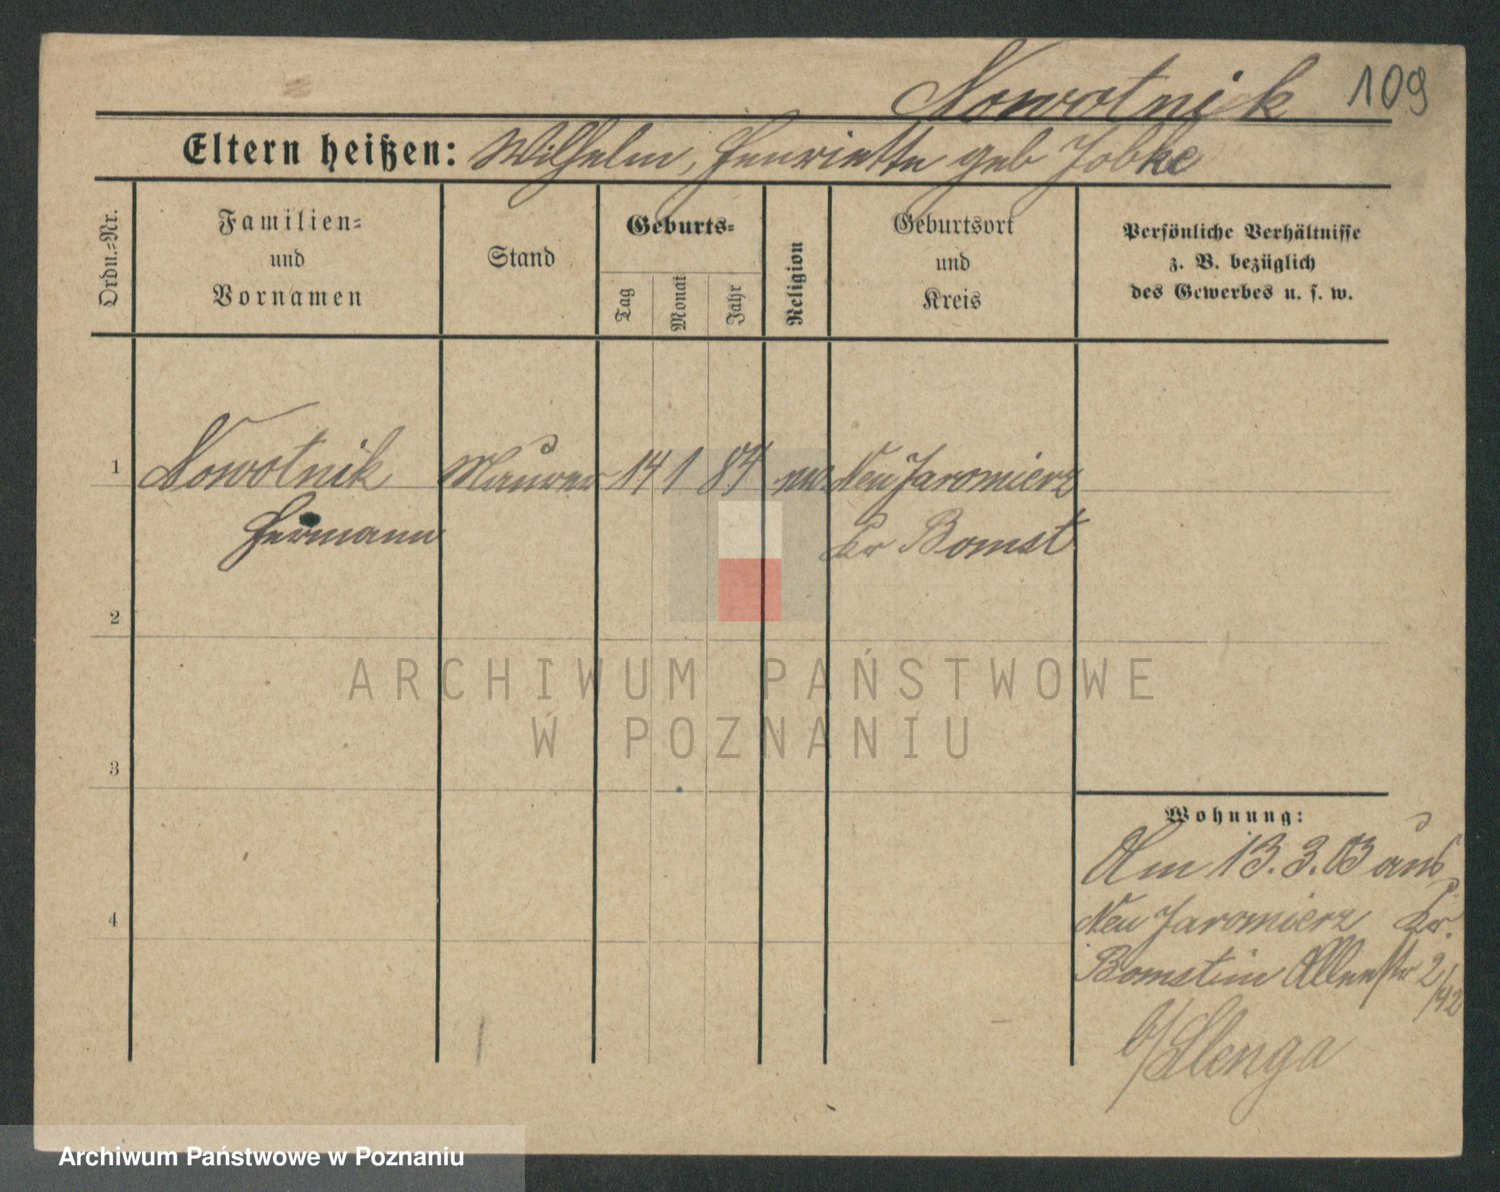 Nowotnik 109
Eltern heißen: Wilhelm, Henriette geb Jobke
Ordn.-Nr.
Familien-
und
Vornamen
Stand
Geburts-
Tag
Monat
Jahr
Religion
Geburtsort
und
Kreis
Persönliche Verhältnisse
z. B. bezüglich
des Gewerbes u. s. w.
1 Nowotnik Maurer 14 1 84 Neu Jaromierz
Hermann Kr Bomst
2
3
4
ARCHIWUM PAŃSTWOWE
W POZNANIU
Wohnung:
Am 13.3.03 aus
Neu Jaromierz Kr.
Bomst in Alleestr 2
/42
b/Slenga
Archiwum Państwowe w Poznaniu